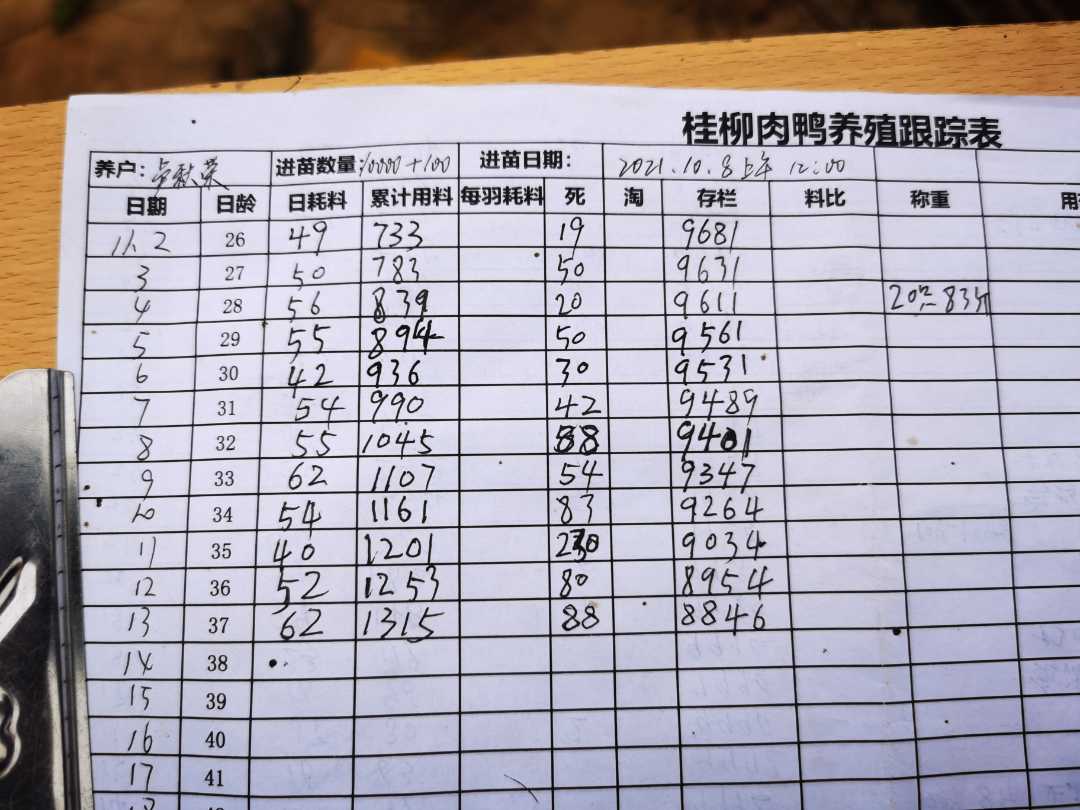 桂柳肉鸭养殖跟踪表
养户: 秋荣 进苗数量: 10000+100 进苗日期: 2021.10.8上午 12:00
日期 日龄 日耗料 累计用料 每羽耗料 死 淘 存栏 料比 称重 用
11.2 26 49 733 19 9681
3 27 50 783 50 9631
4 28 56 839 20 9611 20只83斤
5 29 55 894 50 9561
6 30 42 936 30 9531
7 31 54 990 42 9489
8 32 55 1045 88 9401
9 33 62 1107 54 9347
10 34 54 1161 83 9264
11 35 40 1201 230 9034
12 36 52 1253 80 8954
13 37 62 1315 88 8846
14 38
15 39
16 40
17 41